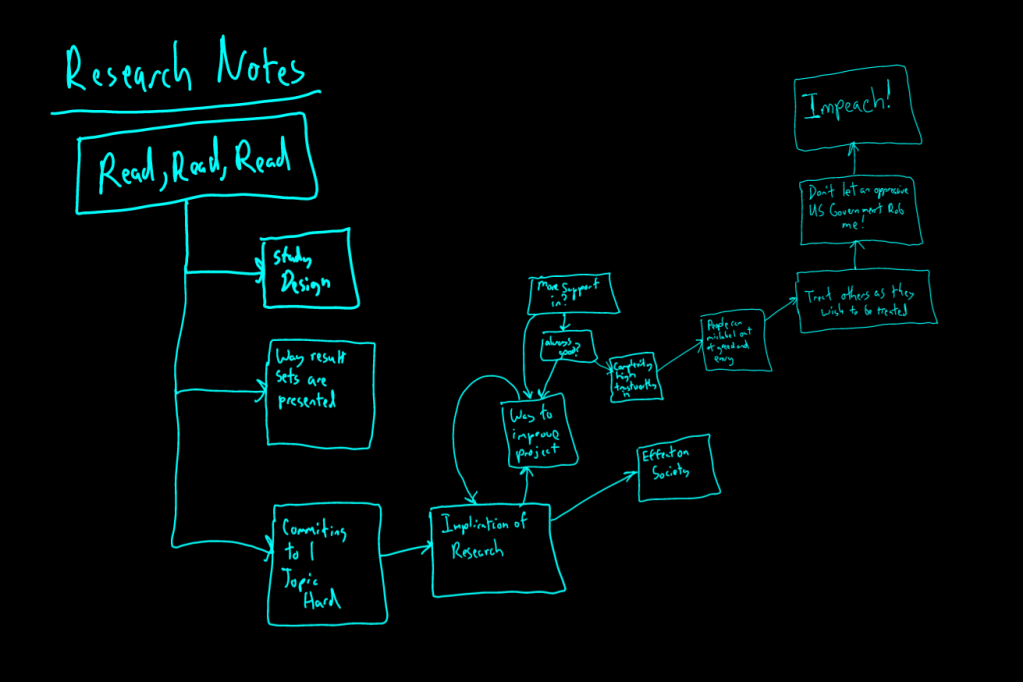 Research Notes
Read, Read, Read
Study
Design
Way result
sets are
presented
Commiting
to 1
Topic
Hard
Implication of
Research
Way to
improve
project
More support
in?
always
good?
Complexity
high
trustworthy
in
Effect on
Society
People can
mislabel out
of greed and
envy
Treat others as they
wish to be treated
Don't let an oppressive
US Government Rob
me!
Impeach!